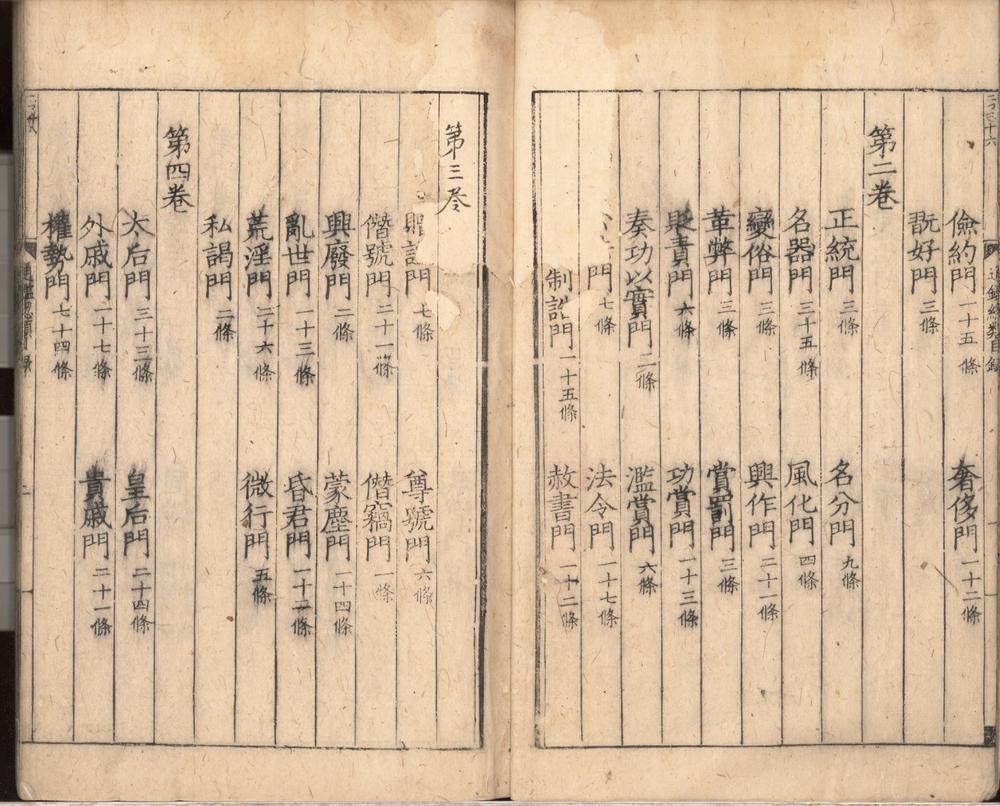 儉約門 一十五條 奢侈門 一十二條
翫好門 三條
第二卷
正統門 三條 名分門 九條
名器門 三十五條 風化門 四條
變俗門 三條 興作門 二十一條
革弊門 三條 賞罰門 三條
責門 六條 功賞門 一十三條
奏功以實門 二條 濫賞門 六條
門 七條 法令門 一十七條
制詔門 一十五條 赦書門 一十二條
第三卷
門 七條 尊號門 六條
僭號門 二十一條 僭竊門 一條
興廢門 二條 蒙塵門 一十四條
亂世門 一十三條 昏君門 一十二條
荒淫門 二十六條 微行門 五條
私謁門 二條
第四卷
太后門 三十三條 皇后門 二十四條
外戚門 一十七條 貴戚門 二十一條
權勢門 七十四條